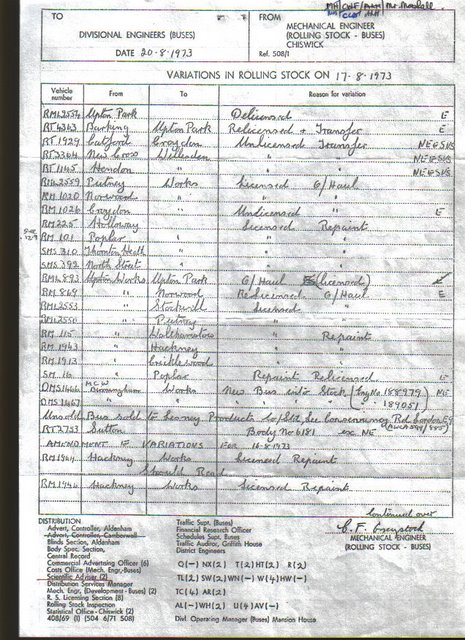 TO
DIVISIONAL ENGINEERS (BUSES)
DATE 20-8-1973
FROM
MECHANICAL ENGINEER
(ROLLING STOCK - BUSES)
CHISWICK
Ref. 508/1
VARIATIONS IN ROLLING STOCK ON 17-8-1973
Vehicle number From To Reason for variation
RML2554 Upton Park Delicensed E
RT4343 Barking Upton Park Relicensed + Transfer E
RT1929 Catford Croydon Unlicensed Transfer
New Cross Willesden " "
RT1145 Hendon " " "
RML2559 Putney Works Licensed O/Haul
RM1020 Norwood " " "
RM1026 Croydon " Unlicensed " E
RM225 Holloway " Licensed Repaint
RM101 Poplar " " "
SMS310 Thornton Heath " " "
SMS392 North Street " " "
RML893 Upton Works Upton Park O/Haul (licensed)
RM869 " Norwood Relicensed O/Haul E
RML2553 " Stockwell Licensed "
RML2550 " Putney " "
RM115 " Walthamstow " Repaint
RM1963 " Hackney " "
RM1913 " Cricklewood " "
SM16 " Poplar Repaint Relicensed E
DMS1466 MCW Birmingham Works New Bus into Stock (Eng No. 188979 NE
DMS1467 " " 189051
Unsold Bus sold to Lesney Products Co/Ltd, Lee Conservancy Rd. London E9
RT2753 Sutton Body No 6181 ex. NE
AMENDMENT TO VARIATIONS FOR 16-8-1973
RM1964 Hackney Works Licensed Repaint
Should Read
RM1940 Hackney Works Licensed Repaint
Continued over
MECHANICAL ENGINEER
(ROLLING STOCK - BUSES)
DISTRIBUTION
Advert, Controller, Aldenham
Advert, Controller, Camberwell
Blinds Section, Aldenham
Body Spec. Section,
Central Record
Commercial Advertising Officer (6)
Costs Office (Mech. Engr, Buses)
Scientific Adviser (2)
Distribution Services Manager
Mech. Engr, (Development - Buses) (2)
R. S. Licensing Section (8)
Rolling Stock Inspection
Statistical Office - Chiswick (2)
408/69 (1) (504 6/71 508)
Traffic Supt. (Buses)
Financial Research Officer
Schedules Supt. Buses
Traffic Auditor, Griffith House
District Engineers
Q(-) NX(2) T(2) HT(2) R(2)
TL(2) SW(2) WN(-) W(4) HW(-)
TC(4) AR(2)
AL(-) WH(2) U(4) AV(-)
Divl. Operating Manager (Buses) Mansion House